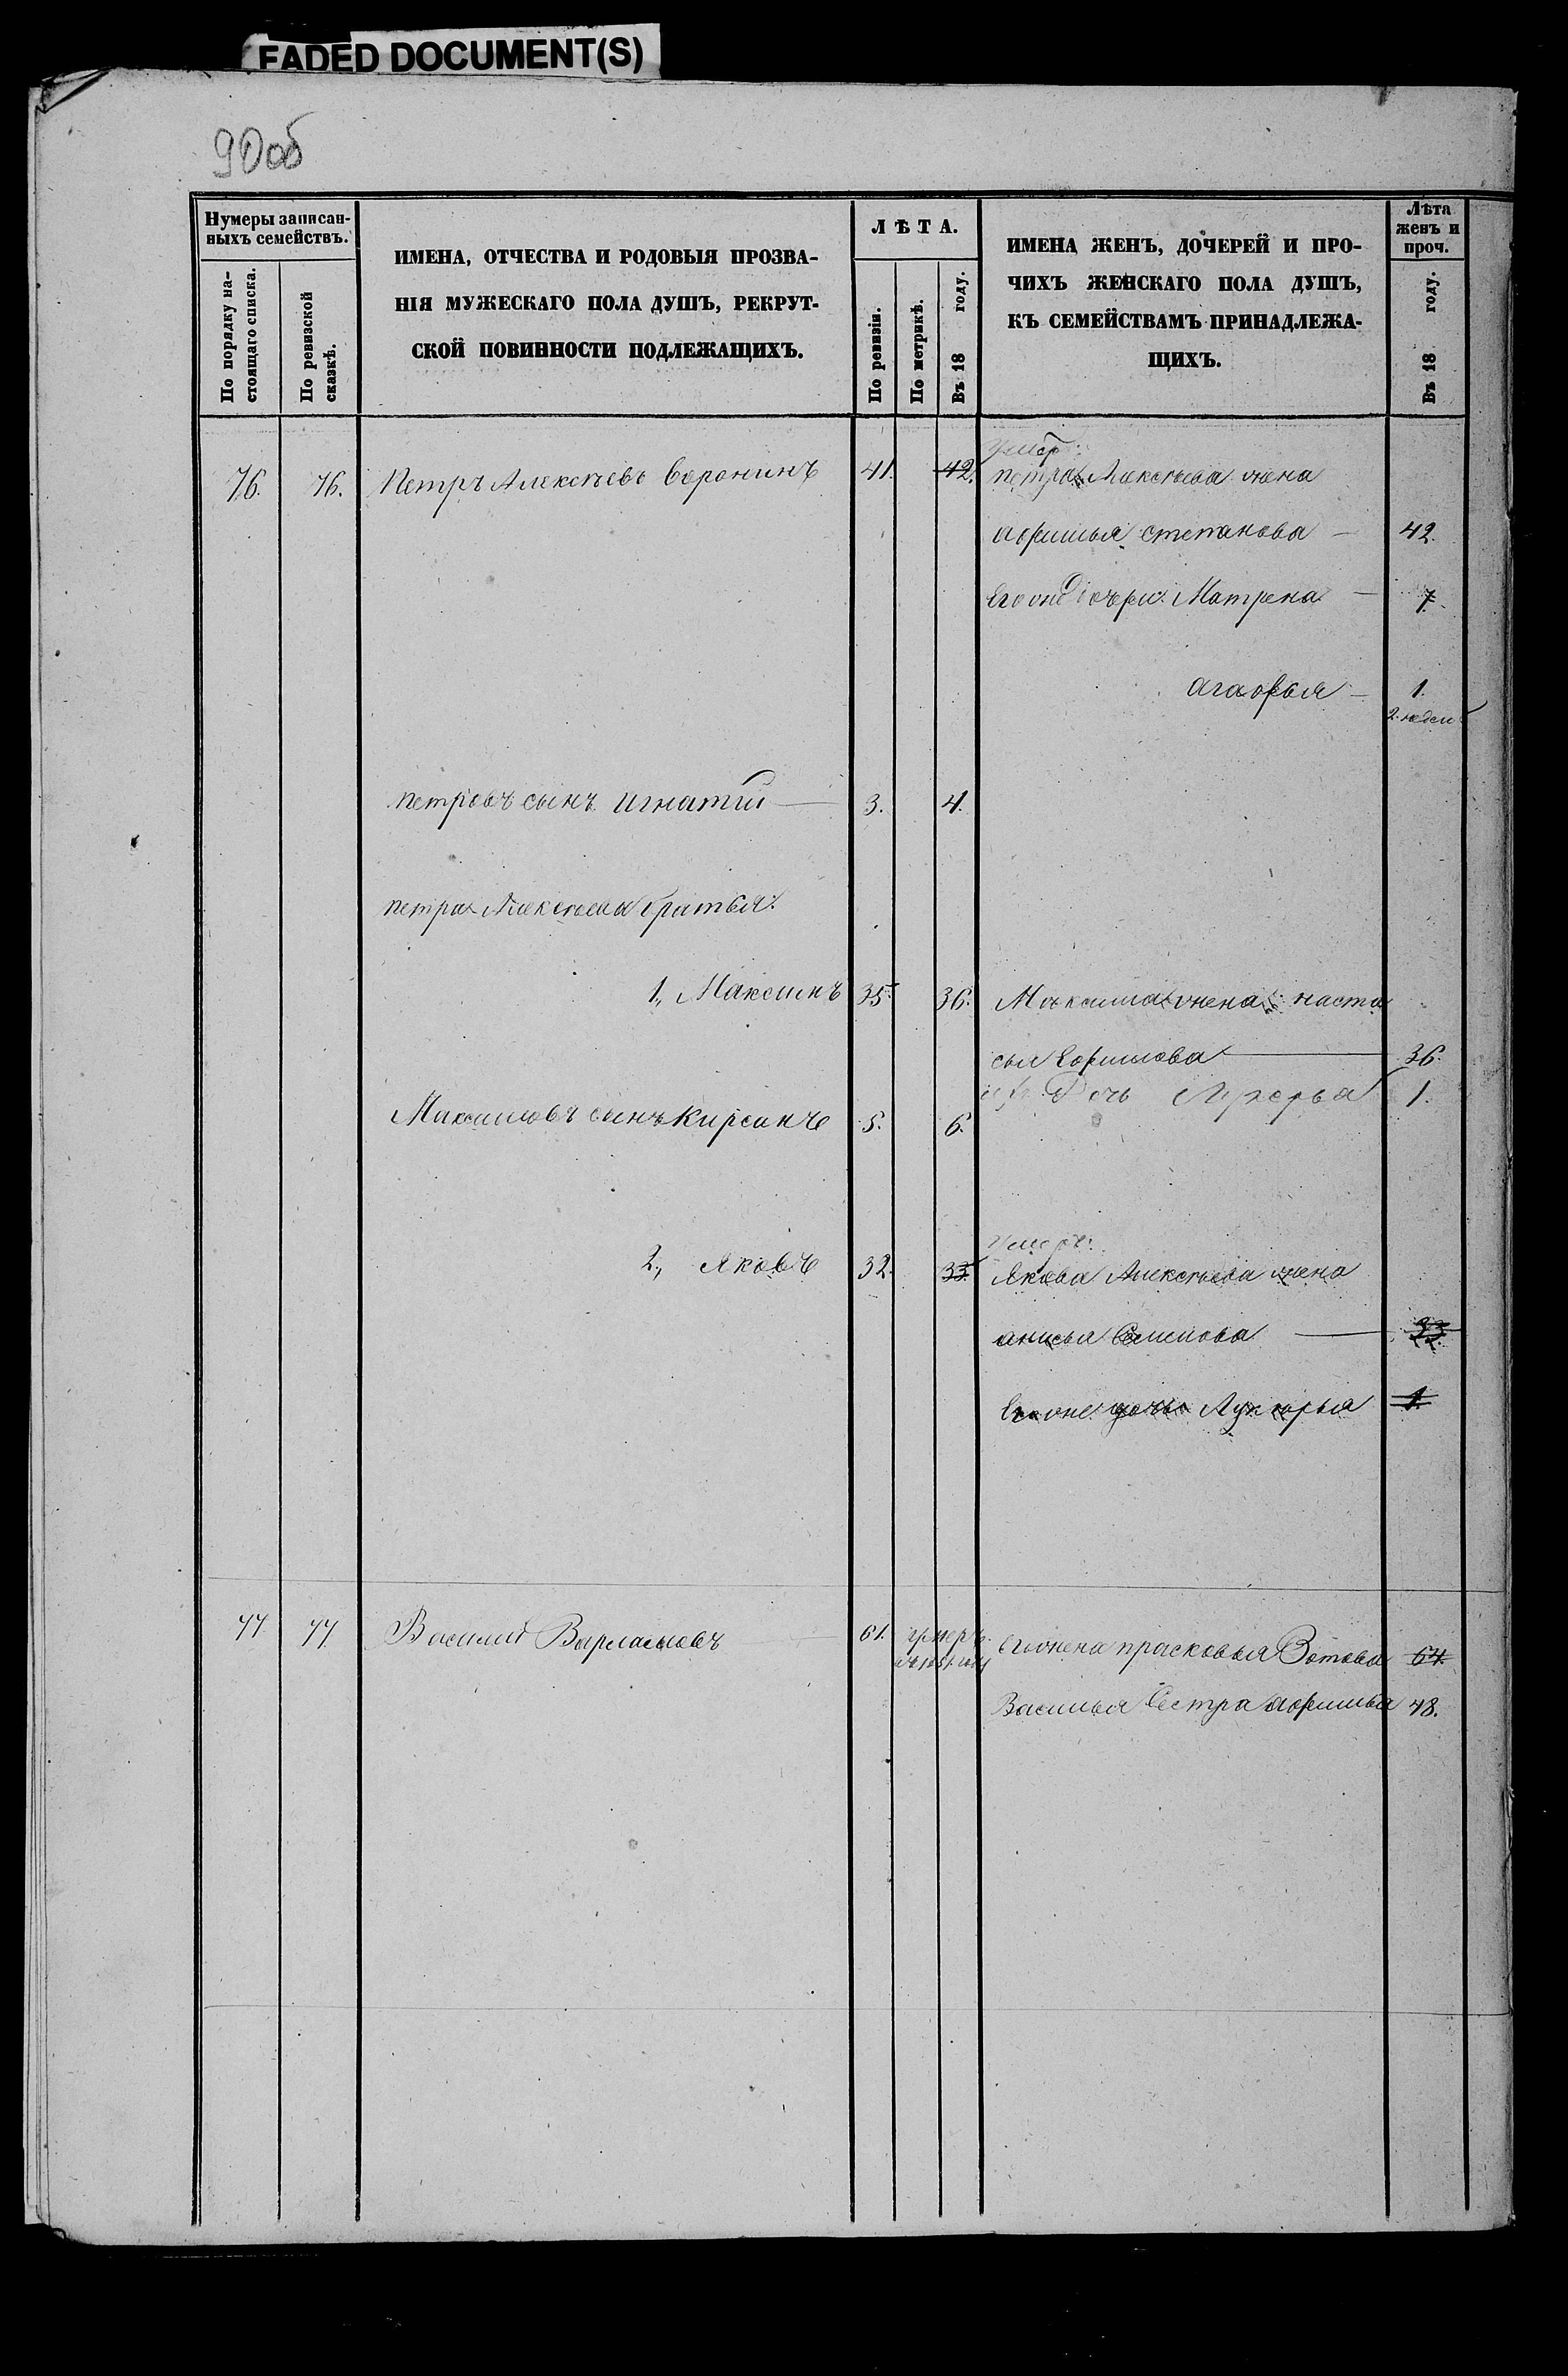 FADED DOCUMENT(S)
90об
Нумеры записан-
ныхъ семействъ.
По порядку на-
стоящаго списка.
По ревизской
сказкѣ.
ИМЕНА, ОТЧЕСТВА И РОДОВЫЯ ПРОЗВА-
НІЯ МУЖЕСКАГО ПОЛА ДУШЪ, РЕКРУТ-
СКОЙ ПОВИННОСТИ ПОДЛЕЖАЩИХЪ.
ЛѢТА.
По ревизіи.
По метрикѣ.
Въ 18 году.
ИМЕНА ЖЕНЪ, ДОЧЕРЕЙ И ПРО-
ЧИХЪ ЖЕНСКАГО ПОЛА ДУШЪ,
КЪ СЕМЕЙСТВАМЪ ПРИНАДЛЕЖА-
ЩИХЪ.
Лѣта
женъ и
проч.
Въ 18 году.
умер:
76. 76. Петръ Алексѣевъ Воронинъ 41. 42. петра Алексѣева жена
афимья степанова — 42.
Егоже дочери: Матрена — 7.
агафья — 1.
2. недели
петровъ сынъ игнатий — 3. 4.
петра Алексѣева братья:
1, Максимъ 35. 36. Максима жена наста
сья Ефимова — 36.
Дочь 1.
Максимовъ сынъ Кирсанъ 5. 6.
Умеръ:
2, Яковъ 32. 33. Якова Алексѣева жена
анисья Семенова — 33.
Егоже дочь Лукерья 1.
77 77. Василий Варламовъ — 61. умеръ. его жена прасковья Зотова 64.
въ 1851 году
Василья Сестра афимья 48.